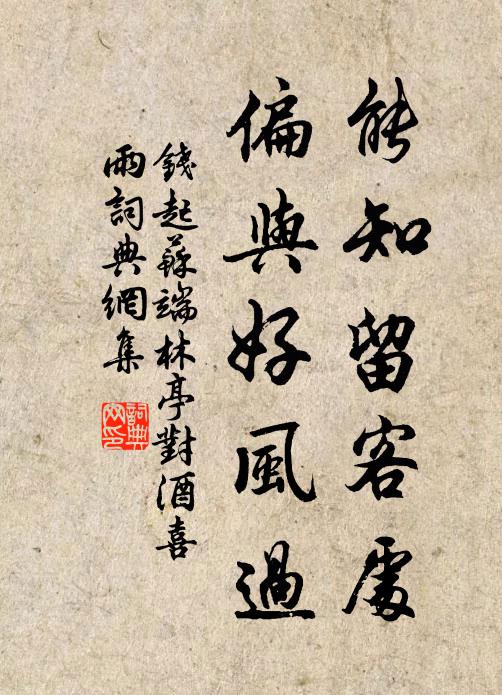 能知留客處
偏與好風過
錢起蘇端林亭對酒喜
雨詞典網集
詞典
網印